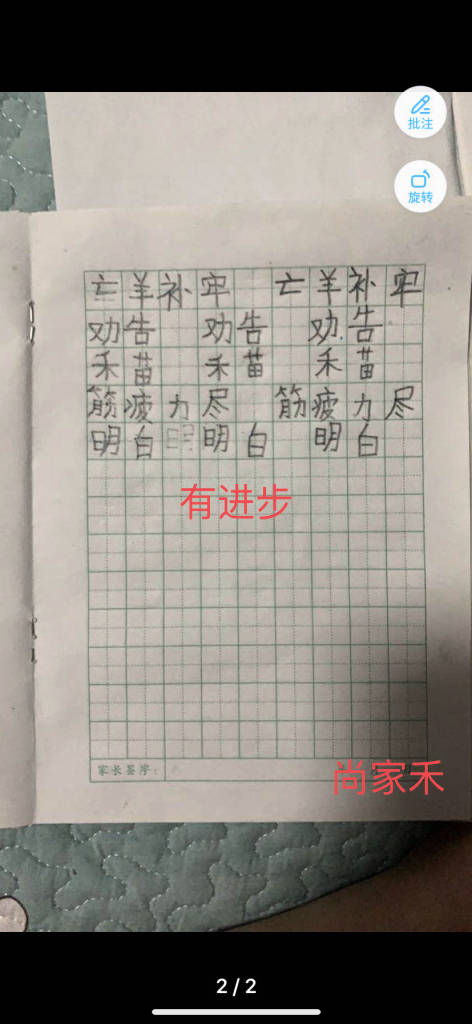 批注
旋转
亡羊补牢 亡羊补牢
劝告 劝告 劝告
禾苗 禾苗 禾苗
筋疲力尽 筋疲力尽
明白明明白 明白
有进步
家长签字：
尚家禾
2/2